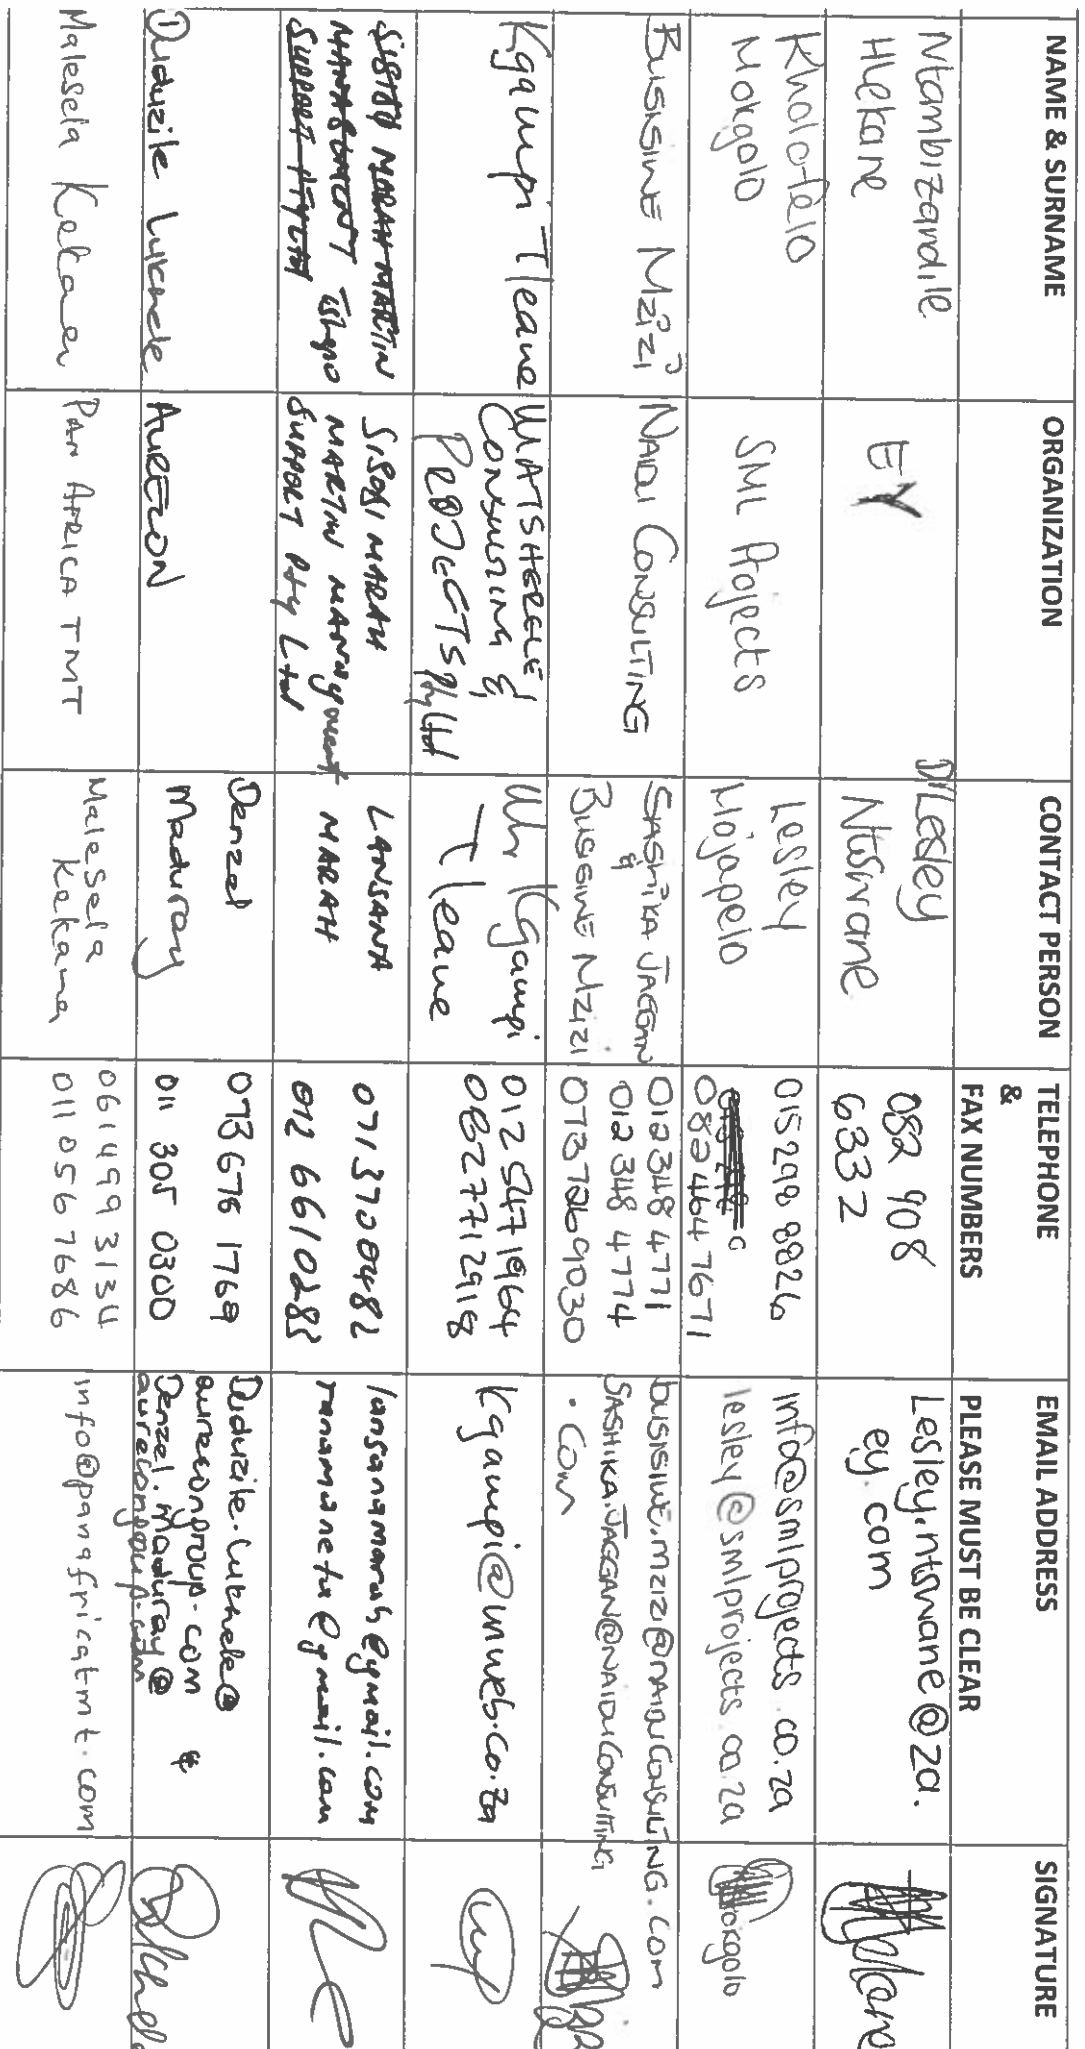 NAME & SURNAME
ORGANIZATION
CONTACT PERSON
TELEPHONE
&
FAX NUMBERS
EMAIL ADDRESS
PLEASE MUST BE CLEAR
SIGNATURE
Ntambizandile
Hlekane
EY
Lesley
Ntswane
082 908
6332
Lesley.ntswane@za.
ey.com
Kholofelo
Mokgolo
SML Projects
Lesley
Mojapelo
015 298 8826
0824647671
info@smlprojects.co.za
lesley@smlprojects.co.za
Mokgolo
BUSISIWE MZIZI
NAIDU CONSULTING
SASHIKA JAGGAN
&
BUSISIWE MZIZI
012 348 4771
012 348 4774
0737269030
BUSISIWE.MZIZI@NAIDUCONSULTING.COM
SASHIKA.JAGGAN@NAIDUCONSULTING
.COM
Kgaumpi Tleane
CONSULTING &
PROJECTS Pty Ltd
Mr Kgaumpi
Tleane
012 547 1964
0827712918
Kgaumpi@mweb.co.za
MARAH MARTIN
MANAGEMENT Tshepo
SUPPORT PTY LTD
SISOSI MARAH
MARTIN MANAgement
SUPPORT Pty Ltd
LANSANA
MARAH
0713700482
012 6610283
lansanamarah@gmail.com
ramamonetu@gmail.com
Duduzile Lukhele
AURECON
Denzel
Maduray
073 678 1769
011 305 0300
Duduzile.Lukhele@
aurecongroup.com &
Denzel.Maduray@
aurecongroup.com
Malesela Kekana
PAN AFRICA TMT
Malesela
Kekana
0614993134
0110567686
info@panafricatmt.com